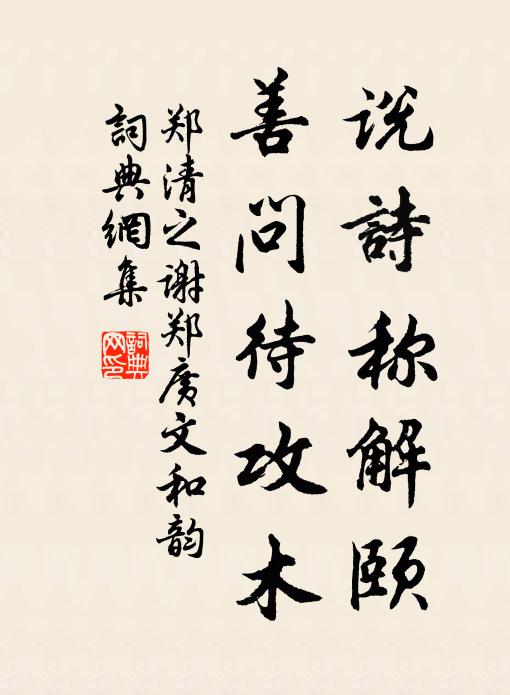 说詩称解頤
善问待攻木
郑清之谢郑廣文和韵
詞典網集
詞典网印